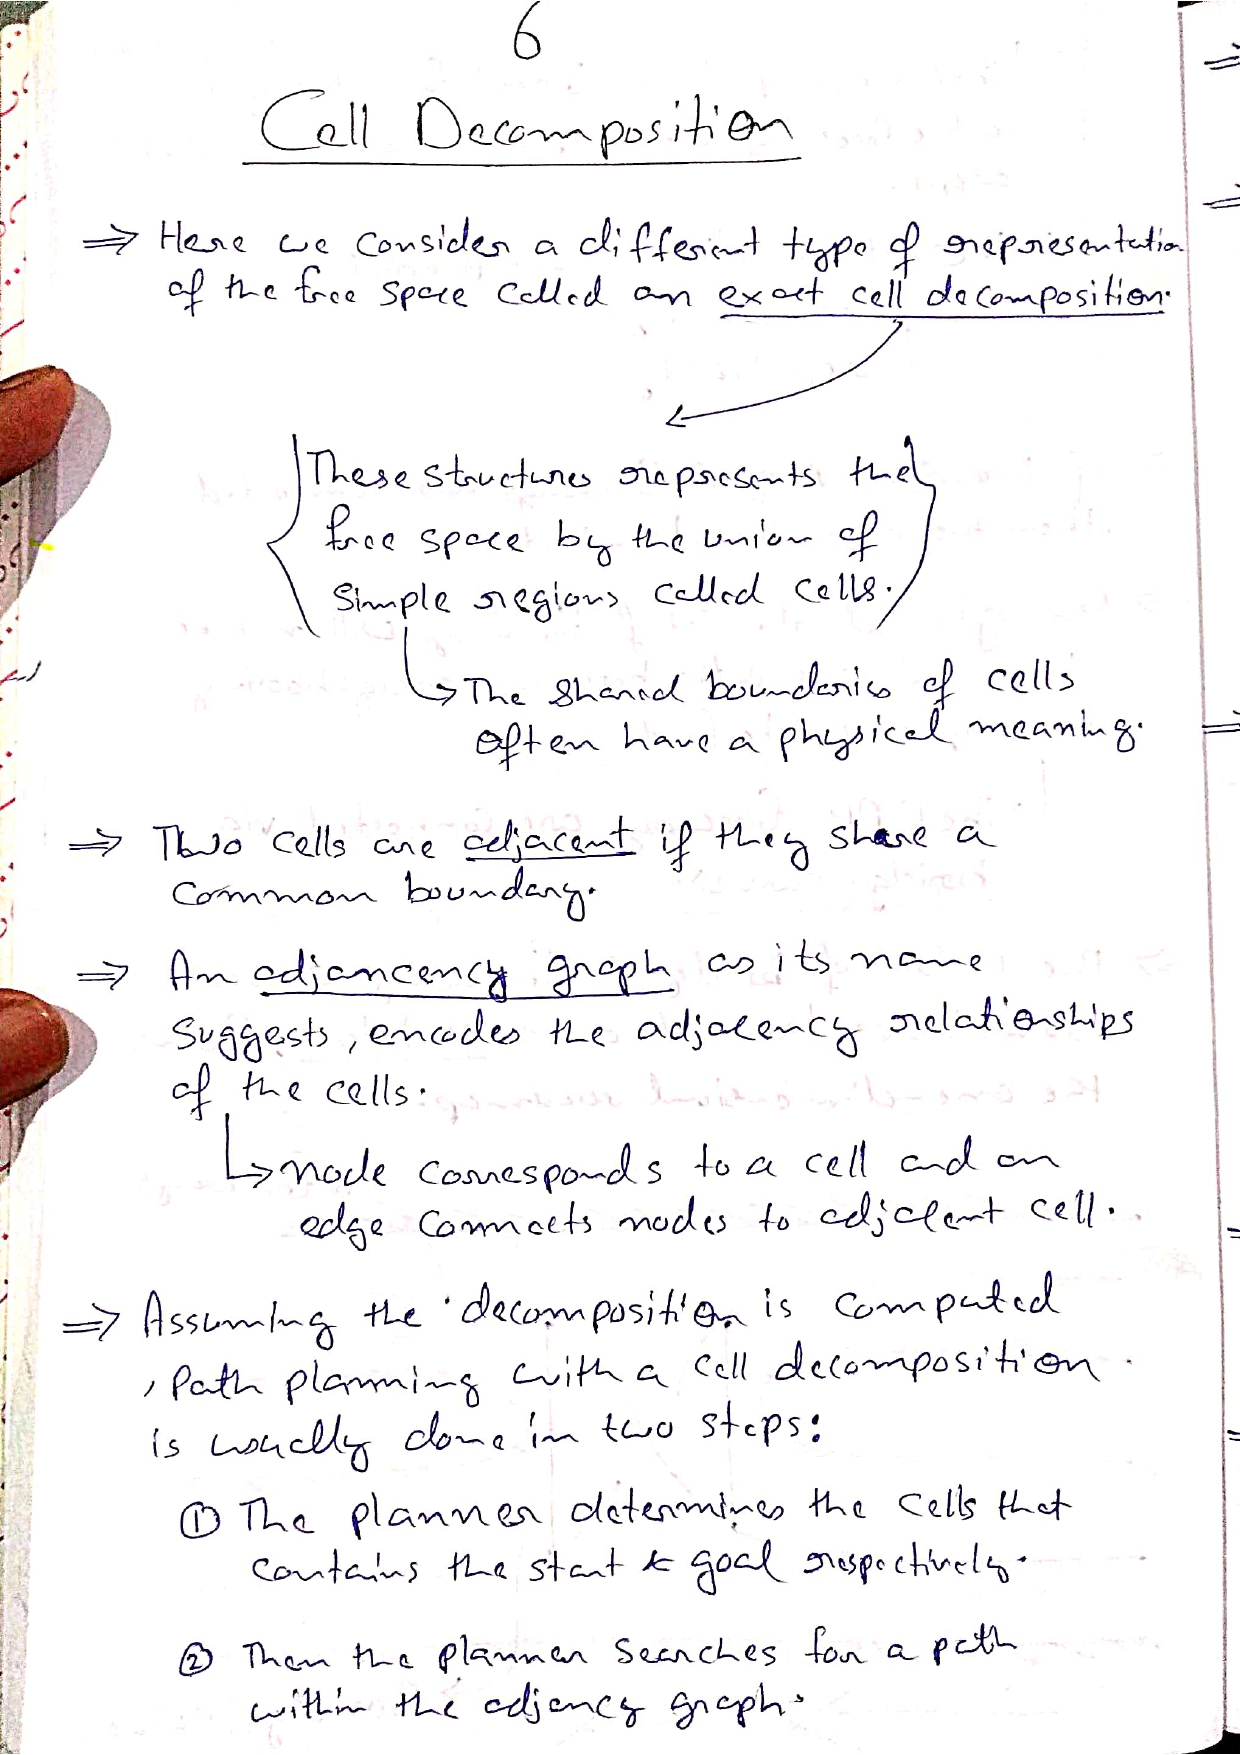 6
Cell Decomposition
⇒ Here we consider a different type of representation
of the free space called an exact cell decomposition.
These structures represents the
free space by the union of
simple regions called cells.
↳ The shared boundaries of cells
often have a physical meaning.
⇒ Two cells are adjacent if they share a
common boundary.
⇒ An adjancency graph as its name
suggests, encodes the adjacency relationships
of the cells.
↳ node corresponds to a cell and an
edge connects nodes to adjacent cell.
⇒ Assuming the decomposition is computed
, Path planning with a cell decomposition
is usually done in two steps:
① The planner determines the cells that
contains the start & goal respectively.
② Then the planner searches for a path
within the adjancy graph.